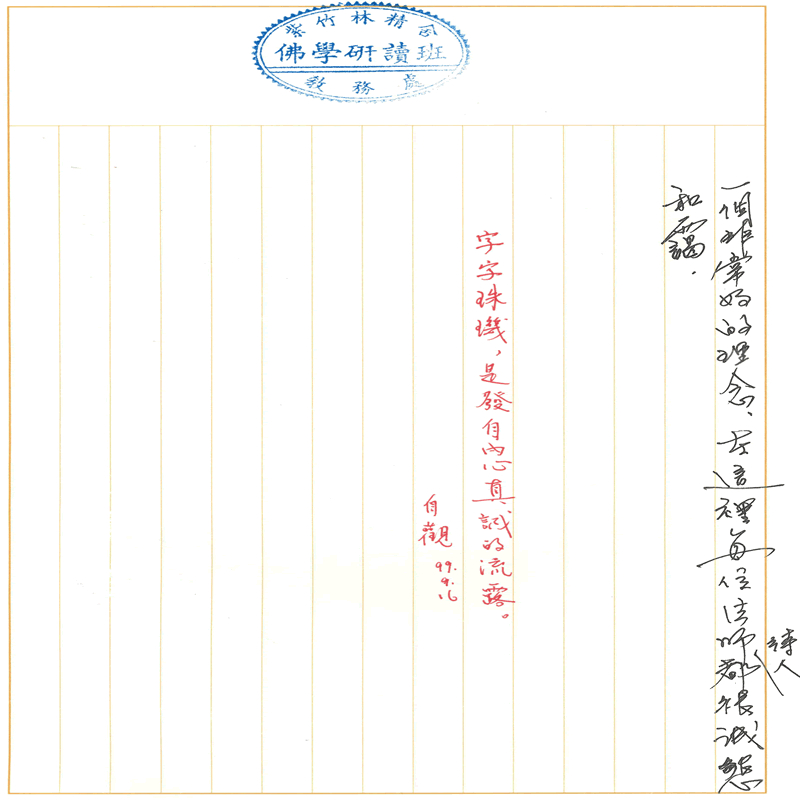 紫竹林精舍
佛學研讀班
教務處
一個非常好的理念、在這裡每位法師都很誠懇
待人
和靄.
字字珠璣,是發自內心真誠的流露。
自觀 99.9.16